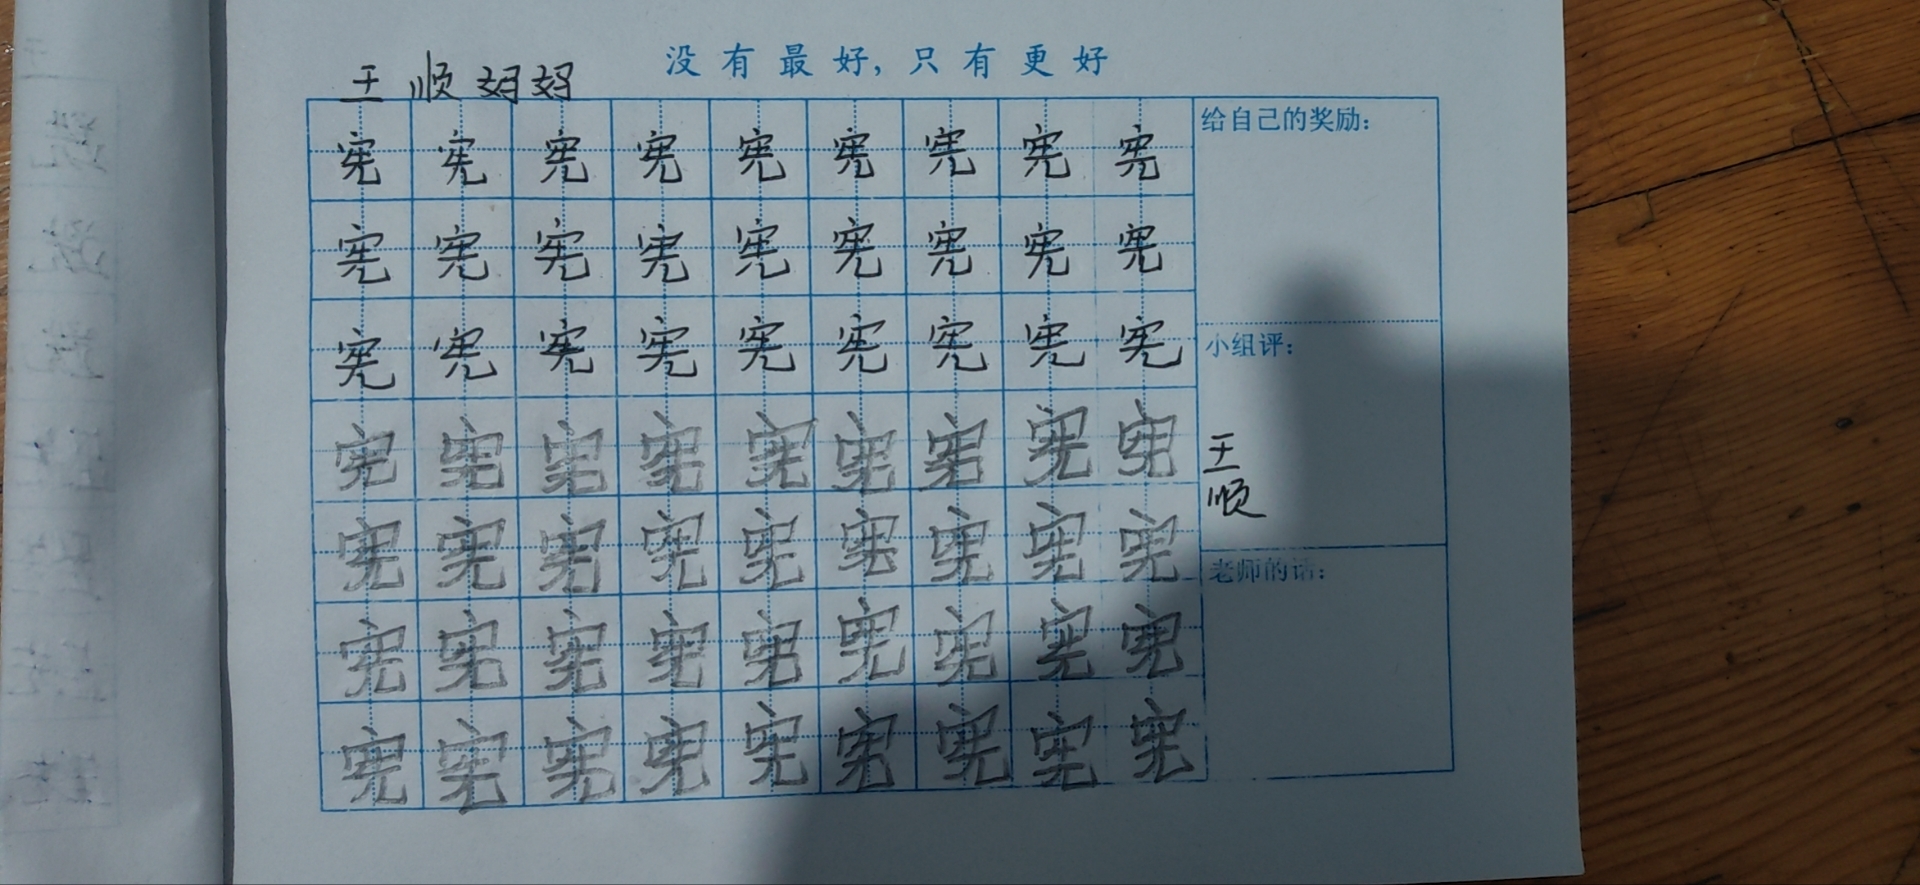 没有最好,只有更好
王顺妈妈
给自己的奖励:
宪宪宪宪宪宪宪宪宪
宪宪宪宪宪宪宪宪宪
宪宪宪宪宪宪宪宪宪
小组评:
宪宪宪宪宪宪宪宪宪
王顺
宪宪宪宪宪宪宪宪宪
老师的话:
宪宪宪宪宪宪宪宪宪
宪宪宪宪宪宪宪宪宪